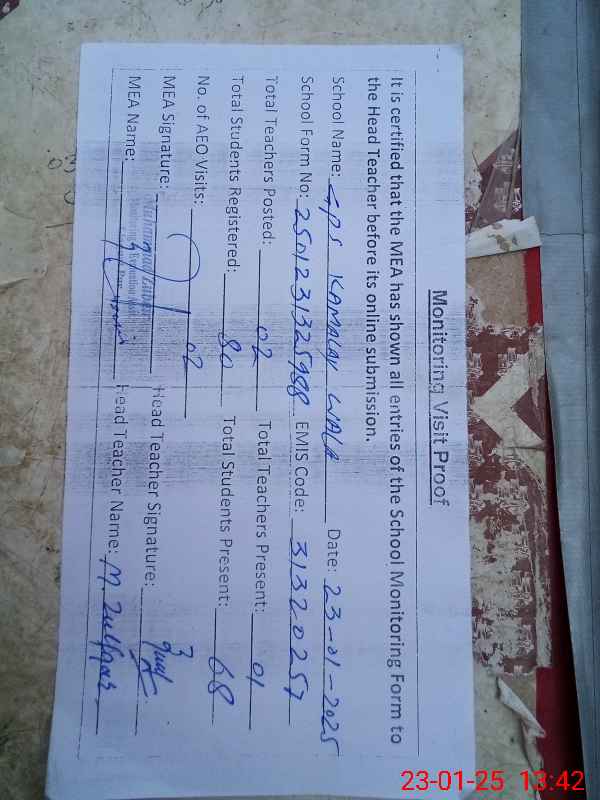 Monitoring Visit Proof
It is certified that the MEA has shown all entries of the School Monitoring Form to
the Head Teacher before its online submission.
School Name: GPS KAMALAY WALA Date: 23-01-2025
School Form No: 2501231325988 EMIS Code: 31320257
Total Teachers Posted: 02 Total Teachers Present: 01
Total Students Registered: 80 Total Students Present: 68
No. of AEO Visits: 02
MEA Signature: Head Teacher Signature:
MEA Name: Head Teacher Name: M. Zulfqar
23-01-25 13:42